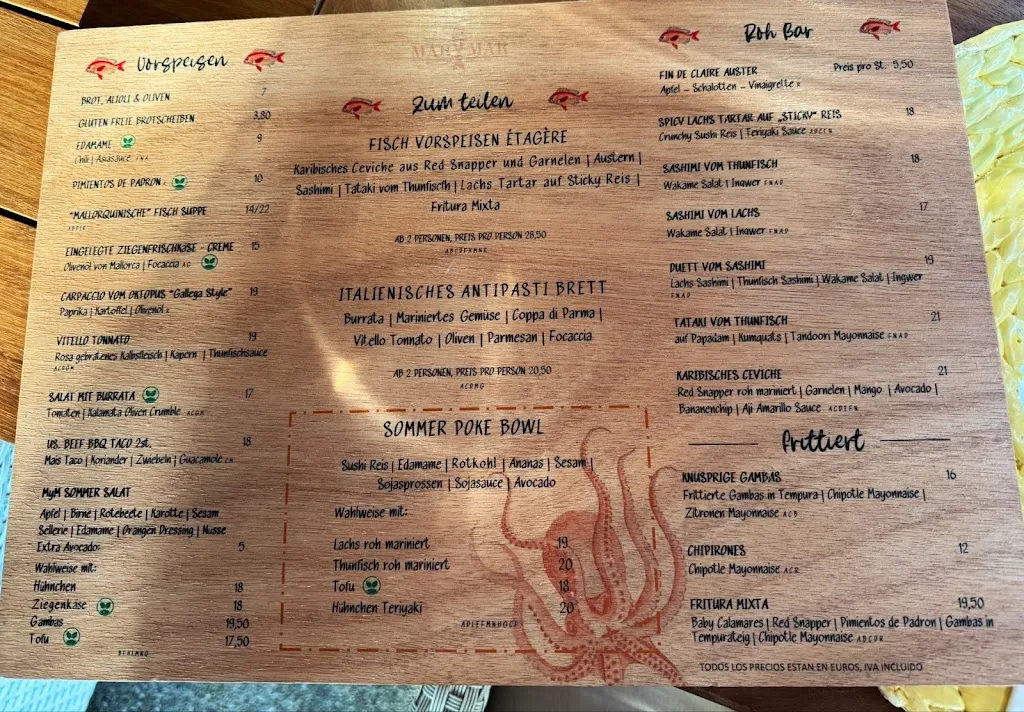 MAR Y MAR
Vorspeisen
BROT, ALIOLI & OLIVEN 7
GLUTEN FREIE BROTSCHEIBEN 3,80
EDAMAME 9
Chili | Asiasauce
PIMIENTOS DE PADRON 10
"MALLORQUINISCHE" FISCH SUPPE 14/22
EINGELEGTE ZIEGENFRISCHKÄSE - CREME 15
Olivenöl von Mallorca | Focaccia
CARPACCIO VOM OKTOPUS "Gallega Style" 19
Paprika | Kartoffel | Olivenöl
VITELLO TONNATO 19
Rosa gebratenes Kalbsfleisch | Kapern | Thunfischsauce
SALAT MIT BURRATA 17
Tomaten | Kalamata Oliven Crumble
US. BEEF BBQ TACO 2st. 18
Mais Taco | Koriander | Zwiebeln | Guacamole
MyM SOMMER SALAT
Apfel | Birne | Rotebeete | Karotte | Sesam
Sellerie | Edamame | Orangen Dressing | Nüsse
Extra Avocado: 5
Wahlweise mit:
Hühnchen 18
Ziegenkäse 18
Gambas 19,50
Tofu 17,50
Zum teilen
FISCH VORSPEISEN ÉTAGÈRE
Karibisches Ceviche aus Red Snapper und Garnelen | Austern |
Sashimi | Tataki vom Thunfiscfh | Lachs Tartar auf Sticky Reis |
Fritura Mixta
AB 2 PERSONEN, PREIS PRO PERSON 28,50
ITALIENISCHES ANTIPASTI BRETT
Burrata | Mariniertes Gemüse | Coppa di Parma |
Vitello Tonnato | Oliven | Parmesan | Focaccia
AB 2 PERSONEN, PREIS PRO PERSON 20,50
ACDMG
SOMMER POKE BOWL
Sushi Reis | Edamame | Rotkohl | Ananas | Sesam |
Sojasprossen | Sojasauce | Avocado
Wahlweise mit:
Lachs roh mariniert 19
Thunfisch roh mariniert 20
Tofu 18
Hühnchen Teriyaki 20
Roh Bar
FIN DE CLAIRE AUSTER Preis pro St. 5,50
Apfel - Schalotten - Vinaigrette
SPICY LACHS TARTAR AUF „STICKY" REIS 18
Crunchy Sushi Reis | Teriyaki Sauce
SASHIMI VOM THUNFISCH 18
Wakame Salat | Ingwer FNAD
SASHIMI VOM LACHS 17
Wakame Salat | Ingwer FNAD
DUETT VOM SASHIMI 19
Lachs Sashimi | Thunfisch Sashimi | Wakame Salat | Ingwer
FNAD
TATAKI VOM THUNFISCH 21
auf Papadam | Kumquats | Tandoori Mayonnaise FNAD
KARIBISCHES CEVICHE 21
Red Snapper roh mariniert | Garnelen | Mango | Avocado |
Bananenchip | Aji Amarillo Sauce
frittiert
KNUSPRIGE GAMBAS 16
Frittierte Gambas in Tempura | Chipotle Mayonnaise |
Zitronen Mayonnaise ACB
CHIPIRONES 12
Chipotle Mayonnaise ACR
FRITURA MIXTA 19,50
Baby Calamares | Red Snapper | Pimientos de Padron | Gambas in
Tempurateig | Chipotle Mayonnaise ABCDR
TODOS LOS PRECIOS ESTAN EN EUROS, IVA INCLUIDO